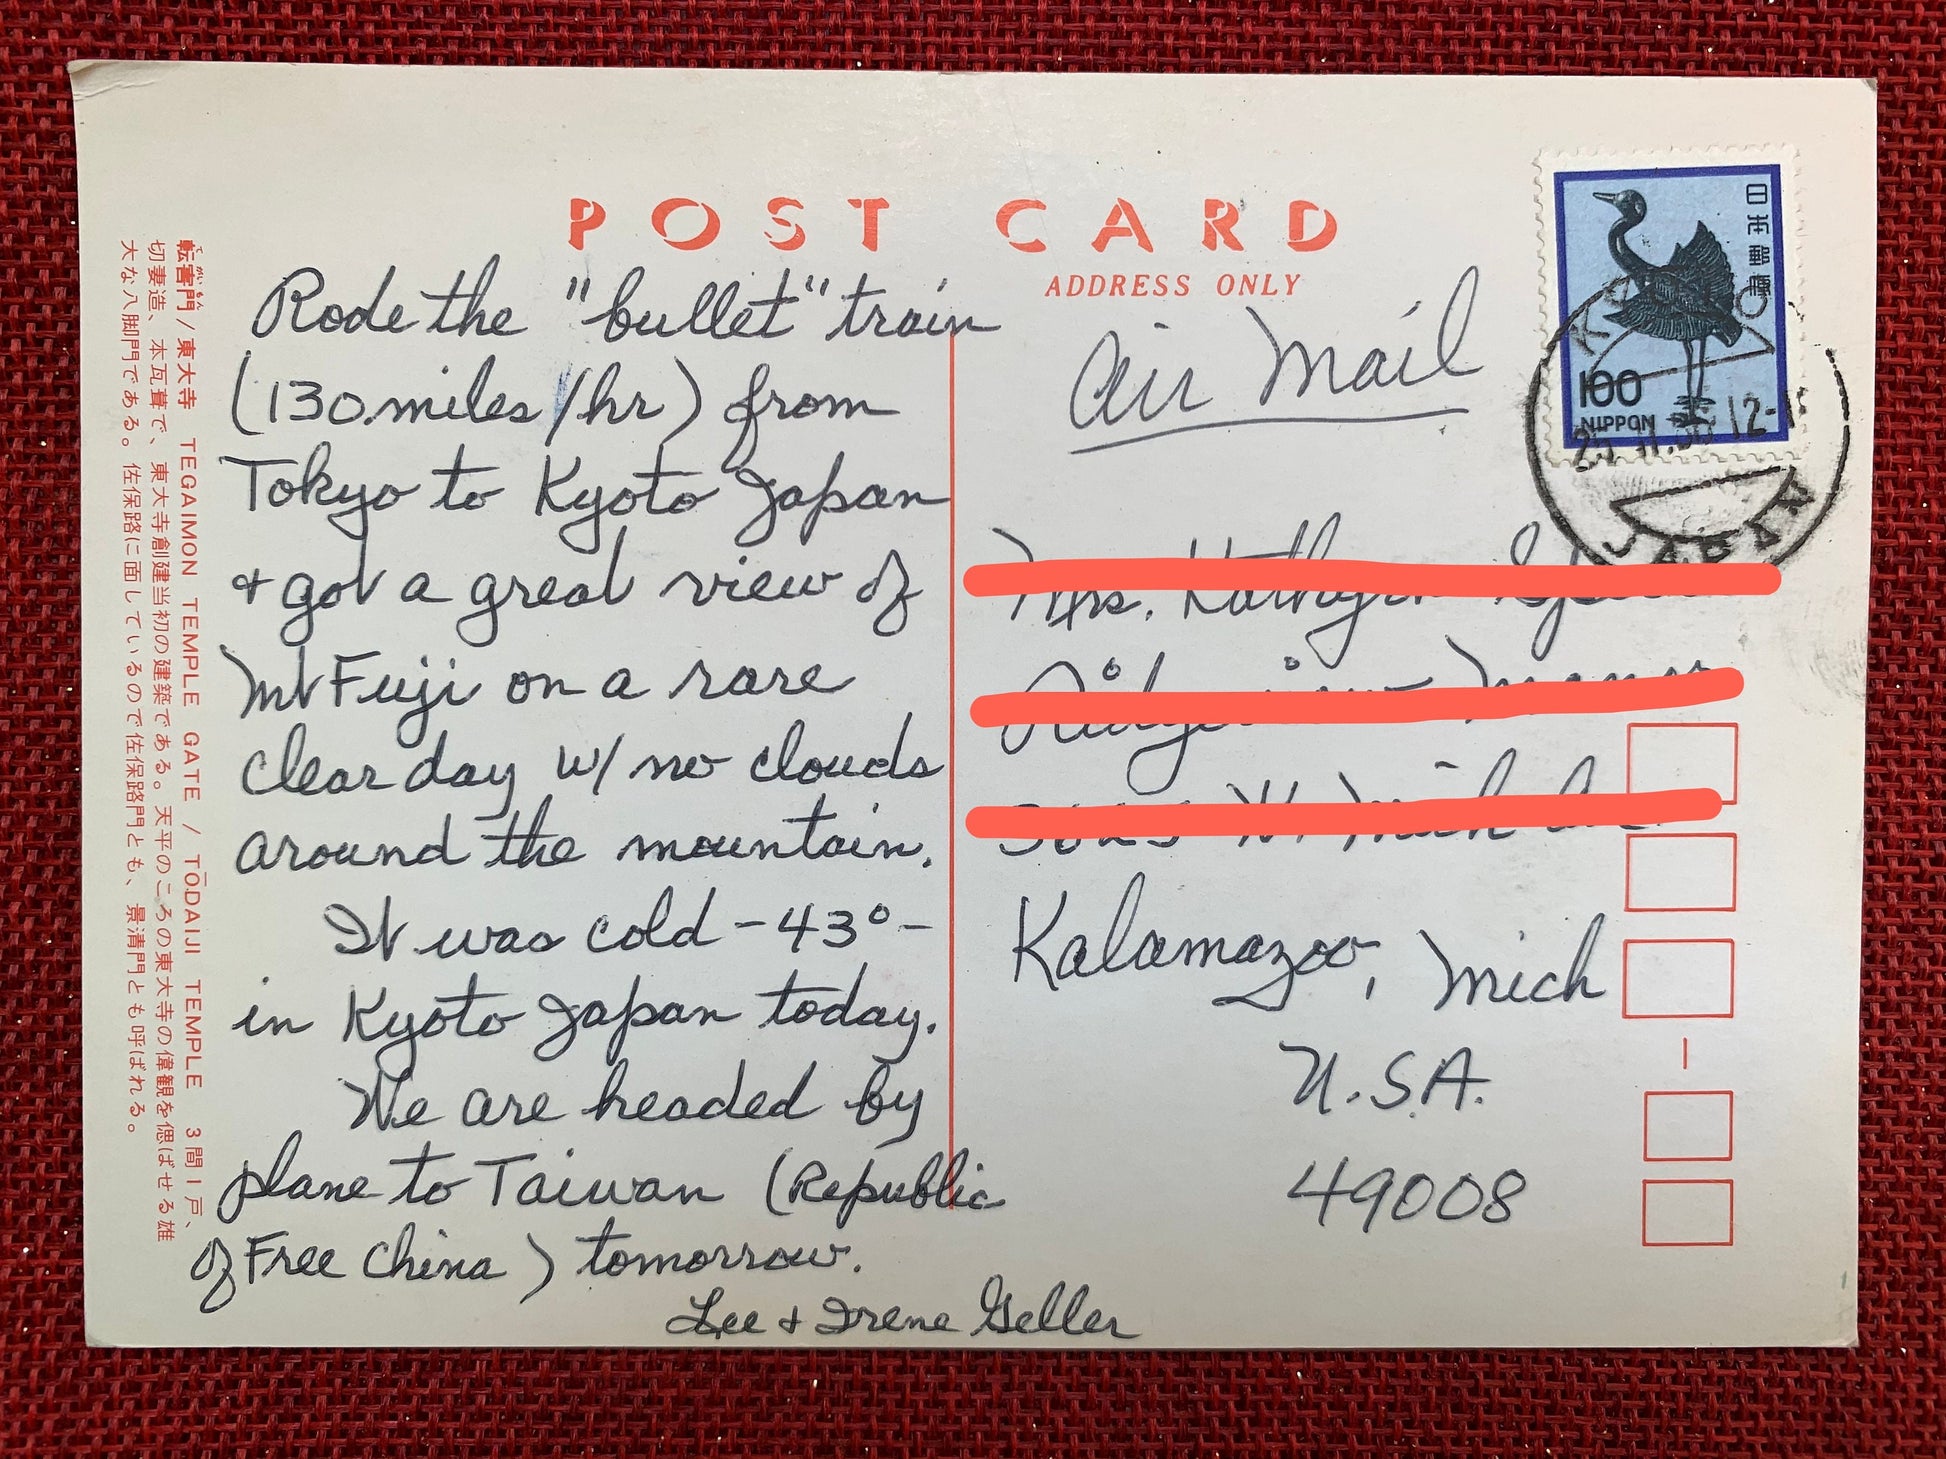 POST CARD
ADDRESS ONLY
Rode the "bullet" train
(130 miles/hr) from
Tokyo to Kyoto Japan
+ got a great view of
Mt Fuji on a rare
clear day w/ no clouds
around the mountain.
It was cold - 43° -
in Kyoto Japan today.
We are headed by
plane to Taiwan (Republic
of Free China) tomorrow.
Lee + Irene Geller
Air Mail
Kalamazoo, Mich
U.S.A.
49008
日本郵便
100
NIPPON
JAPAN
転害門/東大寺 TEGAIMON TEMPLE GATE / TŌDAIJI TEMPLE 3間1戸、
切妻造、本瓦葺で、東大寺創建当初の建築である。天平のころの東大寺の偉観を偲ばせる雄
大な八脚門である。佐保路に面しているので佐保路門とも、景清門とも呼ばれる。